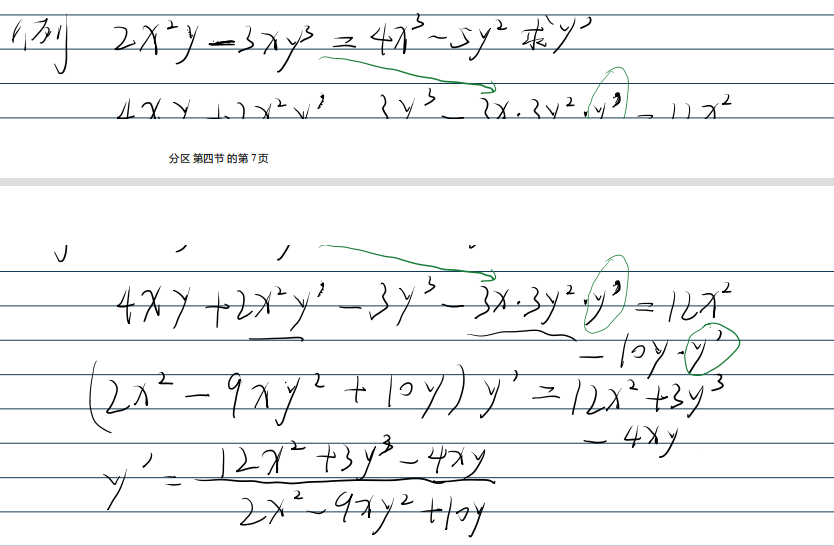 例 2x²y - 3xy³ = 4x³ - 5y² 求y'
4xy + 2x²y' - 3y³ - 3x·3y²·y' = 12x²
分区 第四节 的第 7 页
4xy + 2x²y' - 3y³ - 3x·3y²·y' = 12x²
- 10y·y'
(2x² - 9xy² + 10y) y' = 12x² + 3y³
- 4xy
y' = 12x² + 3y³ - 4xy
2x² - 9xy² + 10y